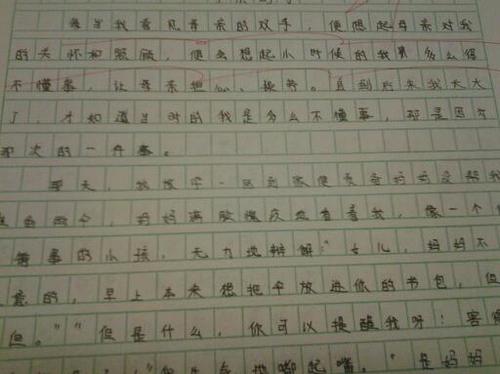 每当我看见母亲的双手，便想起母亲对我
的关怀和照顾，便会想起小时候的我是多么得
不懂事，让母亲担心、操劳。直到后来我长大
了，才知道当时的我是多么不懂事，那是因为
那次的一件事。
那天，我放学一回到家便
妈妈满脸愧疚地看着我，像一个
错事的小孩，无力地辩解："女儿，妈妈不
意的，早上本来想把伞放进你的书包，但
但。""但是什么，你可以提醒我呀！害得
地嘟起嘴。"是妈妈